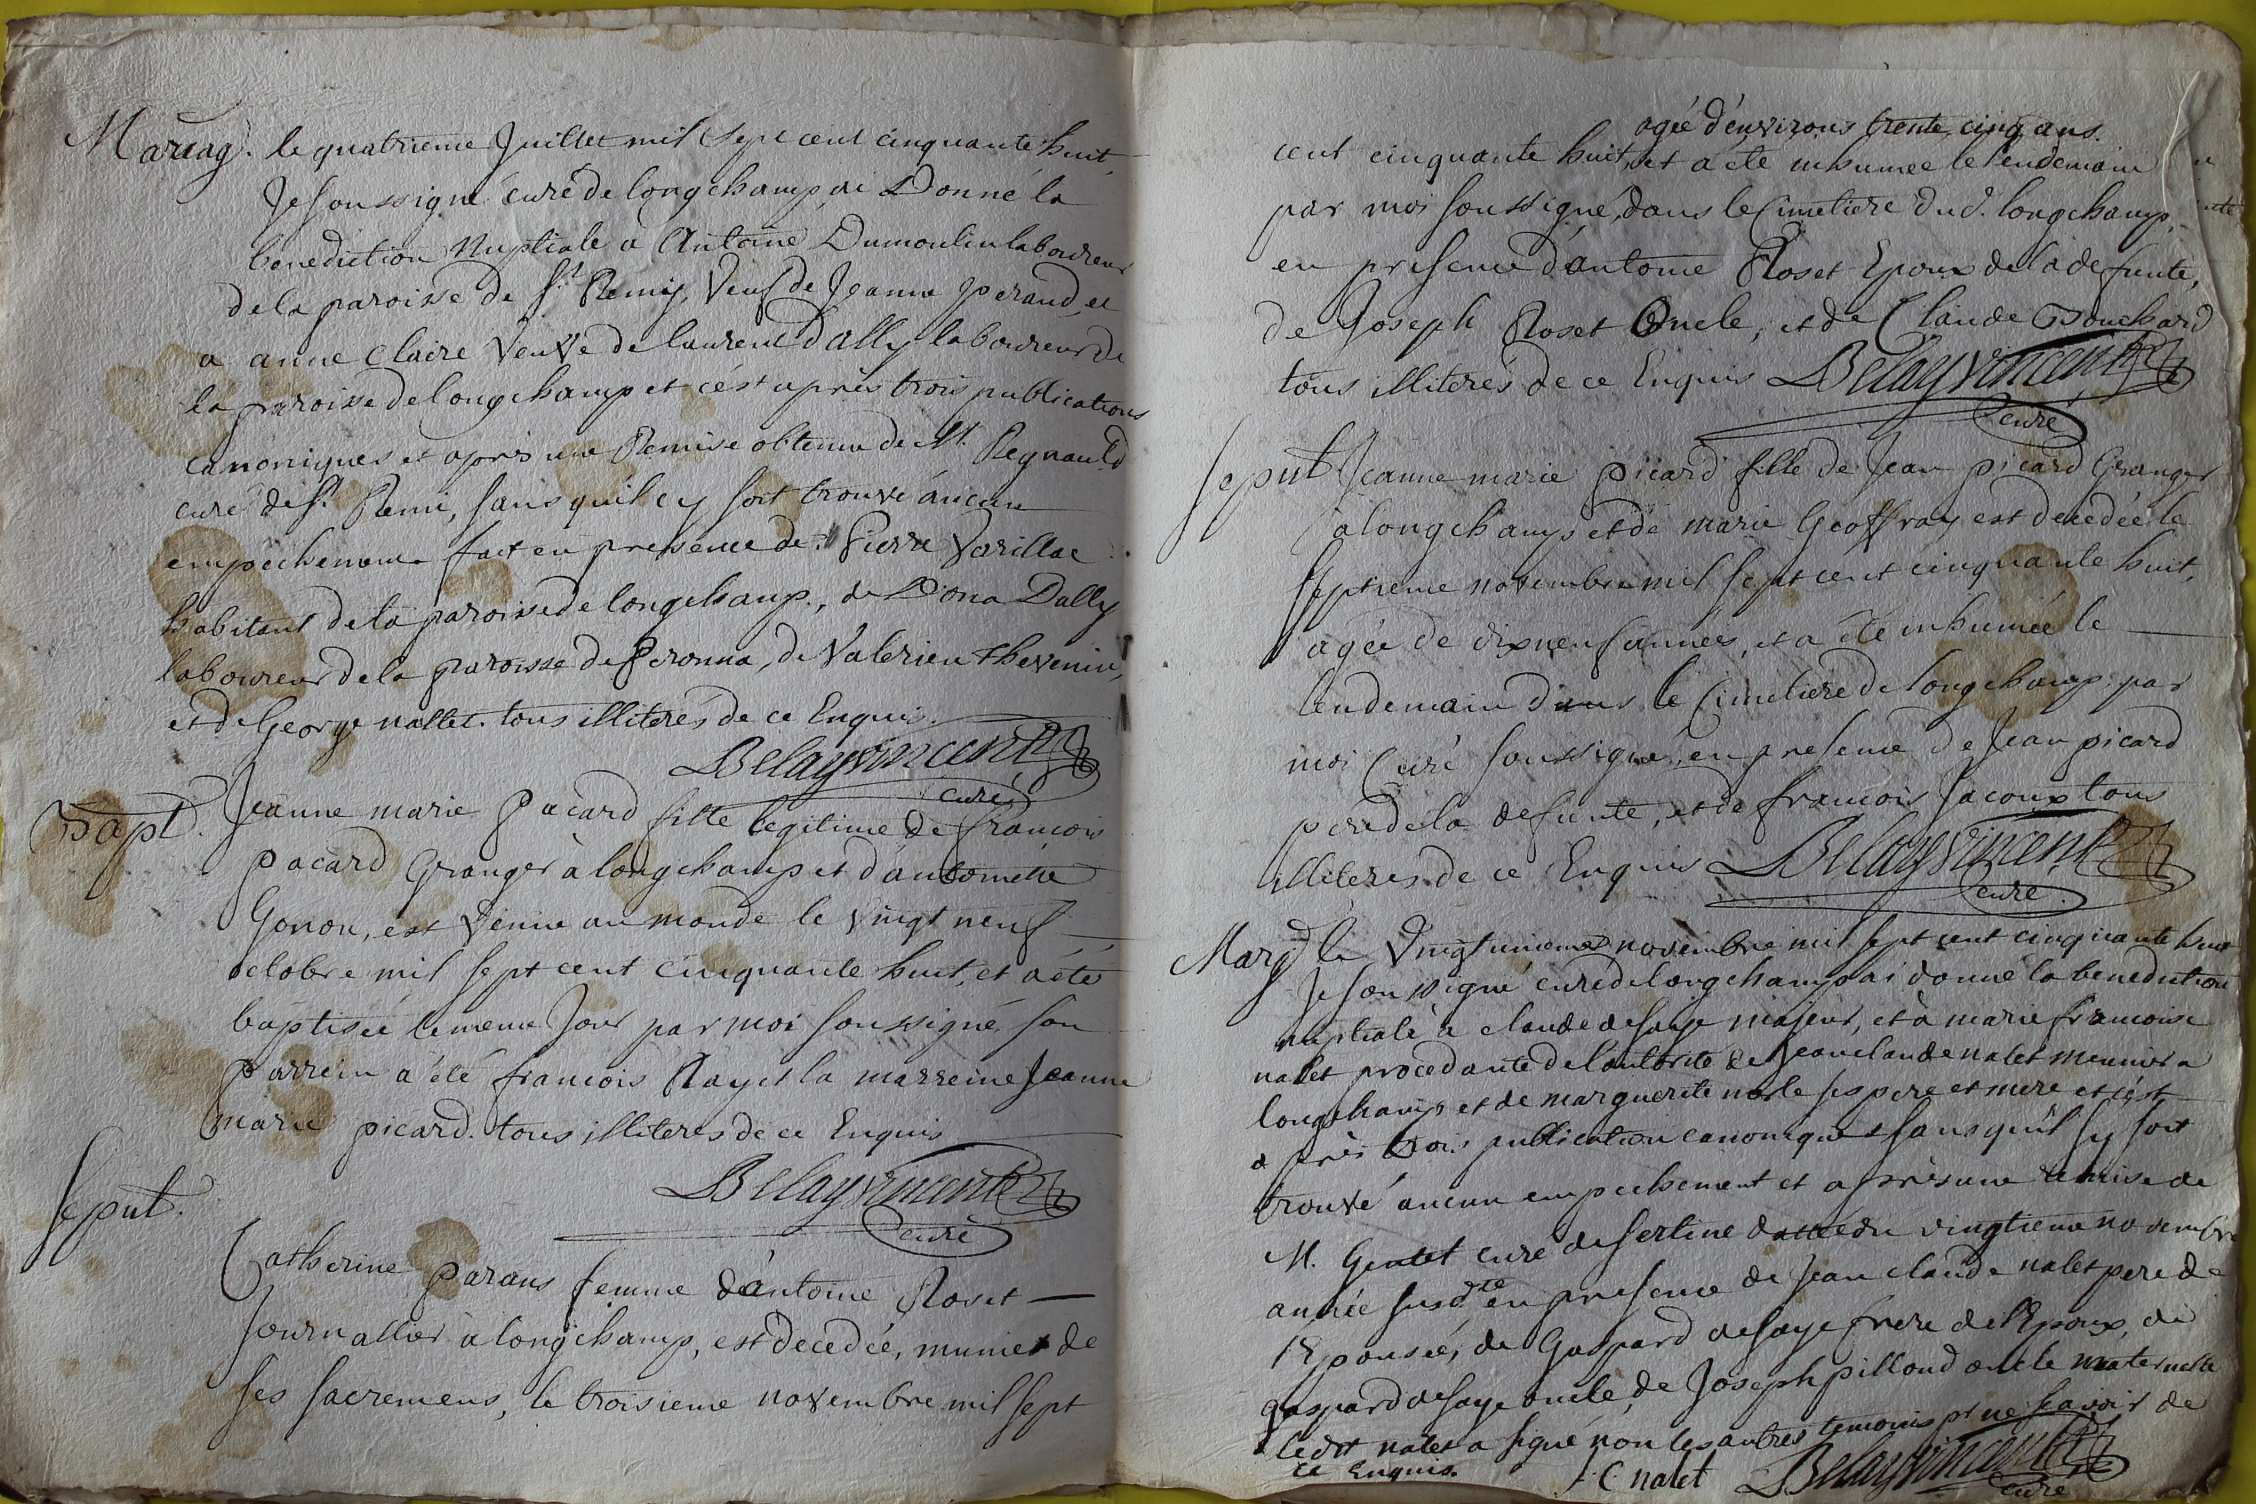 Mariag. le quatrieme Juillet mil sept cent cinquante huit,
Je soussigné curé de longchamp, ai Donné la
benediction Nuptiale a Antoine Dumoulin laboureur
de la paroisse de st Remy, Veuf de Jeanne peraud, et
a anne Claire Veuve de laurent Dally laboureur de
la paroisse de longchamp et c'est après trois publications
canoniques et après une Remise obtenue de M. Regnauld
curé de st. Remi, sans qu'il cy soit trouvé aucun
empechement fait en presence de Pierre Varillac
habitant de la paroisse de longchamp, de Dona Dally
laboureur de la paroisse de Peronna, de Valerien thevenin,
et de George nallet. tous illiteres de ce Enquis.
Belayvincent
curé
Bapt. Jeanne marie Pacard fille legitime de francois
pacard Granger à longchamp et d'antoinette
Gonon, est venue au monde le vingt neuf
octobre mil sept cent cinquante huit, et a été
baptisée le meme Jour par moi soussigné, son
Parrein a été francois Ray et la marreine Jeanne
marie picard. tous illiteres de ce Enquis
Belayvincent
curé
Seput.
Catherine parans femme d'antoine Roset
Journallier a longchamp, est decedée, munie de
ses sacremens, le troisieme novembre mil sept
agée d'environs trente cinq ans.
cent cinquante huit, et a été inhumée le lendemain
par moi soussigné, dans le Cimetiere dud. longchamp,
en presence d'antoine Roset Epoux de la defunte,
de Joseph Roset Oncle, et de Claude Bouchard
tous illiterés de ce Enquis Belayvincent
curé
Seput Jeanne marie picard fille de Jean picard Granger
a longchamp et de marie Geoffray est decedée le
septieme novembre mil sept cent cinquante huit,
agée de dixneuf années, et a été inhumée le
lendemain dans le Cimetiere de longchamp par
moi Curé soussigné, en presence de Jean picard
pere de la defunte, et de francois Jacoux tous
illiteres de ce Enquis Belayvincent
curé
Marg le Vingtunieme novembre mil sept cent cinquante huit
Je soussigné curé de longchamp ai donné la benediction
nuptiale a claude desaye majeur, et à marie francoise
nalet procedante de l'autorité de Jean claude nalet meunier a
longchamp et de marguerite ses pere et mere et c'est
après trois publication canonique sans qu'il sy soit
trouvé aucun empechement et après une remise de
M. Gentet curé de sertine dattée du vingtieme novembre
année susdte en presence de Jean claude nalet pere de
l'Epousée, de Gaspard desaye frere de l'Epoux, de
gaspard desaye oncle, de Joseph pilloud oncle maternelle
ledit nalet a signé non les autres temoins pr ne scavoir de
ce Enquis. J. C. nalet Belayvincent
curé